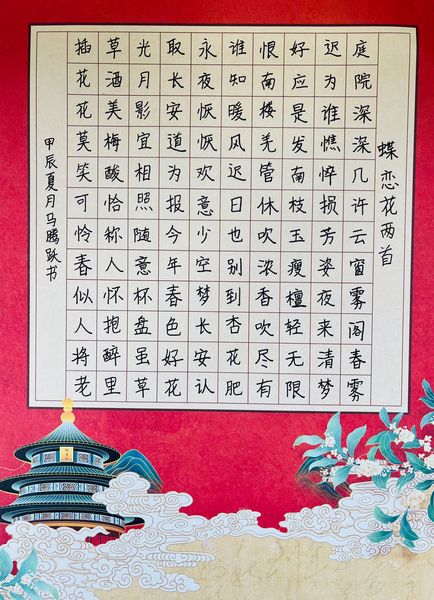 蝶恋花两首
庭院深深几许云窗雾阁春雾
迟为谁憔悴损芳姿夜来清梦
好应是发南枝玉瘦檀轻无限
恨南楼羌管休吹浓香吹尽有
谁知暖风迟日也别到杏花肥
永夜恹恹欢意少空梦长安认
取长安道为报今年春色好花
光月影宜相照随意杯盘虽草
草酒美梅酸恰称人怀抱醉里
插花花莫笑可怜春似人将老
甲辰夏月马腾跃书